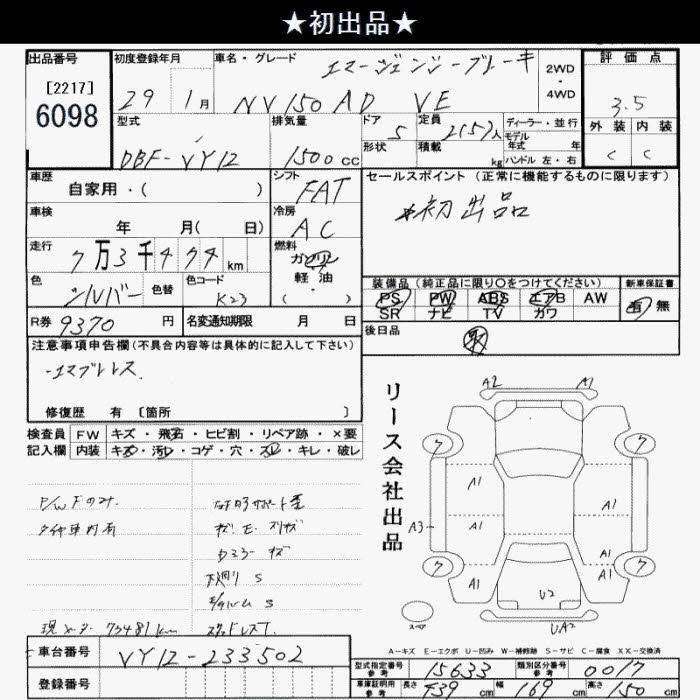 ★初出品★
出品番号
[2217]
6098
初度登録年月
29 1月
車名・グレード
エマージェンシーブレーキ
NV150 AD VE
2WD
・
4WD
評価点
3.5
外装 内装
C C
型式
DBF-VY12
排気量
1500cc
ドア
5
形状
定員
2(5)人
積載
kg
ディーラー・並行
モデル
年式 年
ハンドル 左・右
車歴
自家用・( )
シフト
FAT
車検
年 月( 日)
冷房
AC
走行
7万3千474km
燃料
ガソリン
軽・油
( ・ )
色
シルバー
色替
色コード
K23
R券 9370 円
名変通知期限 月 日
セールスポイント(正常に機能するものに限ります)
*初出品
装備品(純正品に限り○をつけてください)
PS PW ABS エアB AW
SR ナビ TV カワ
新車保証書
有 無
後日品
注意事項申告欄(不具合内容等は具体的に記入して下さい)
-エマブレレス.
修復歴 有 〔箇所 〕
検査員 FW キズ・飛石・ヒビ割・リペア跡・×要
記入欄 内装 キズ・汚レ・コゲ・穴・スレ・キレ・破レ
P/W Fのみ.
タイヤ車内有
キズ
下廻り S
現メーター 73481km
スタッドレス
リース会社出品
A2 A1
A1
A1
A3
A1
A1
A1
A1
A1
U2
UA2
スペア
A-キズ E-エクボ U-凹み W-補修跡 S-サビ C-腐食 XX-交換済
車台番号 VY12-233502
登録番号
型式指定番号
参考
15633
類別区分番号
参考
0017
車庫証明用
参考
長さ 439cm 幅 169cm 高さ 150cm